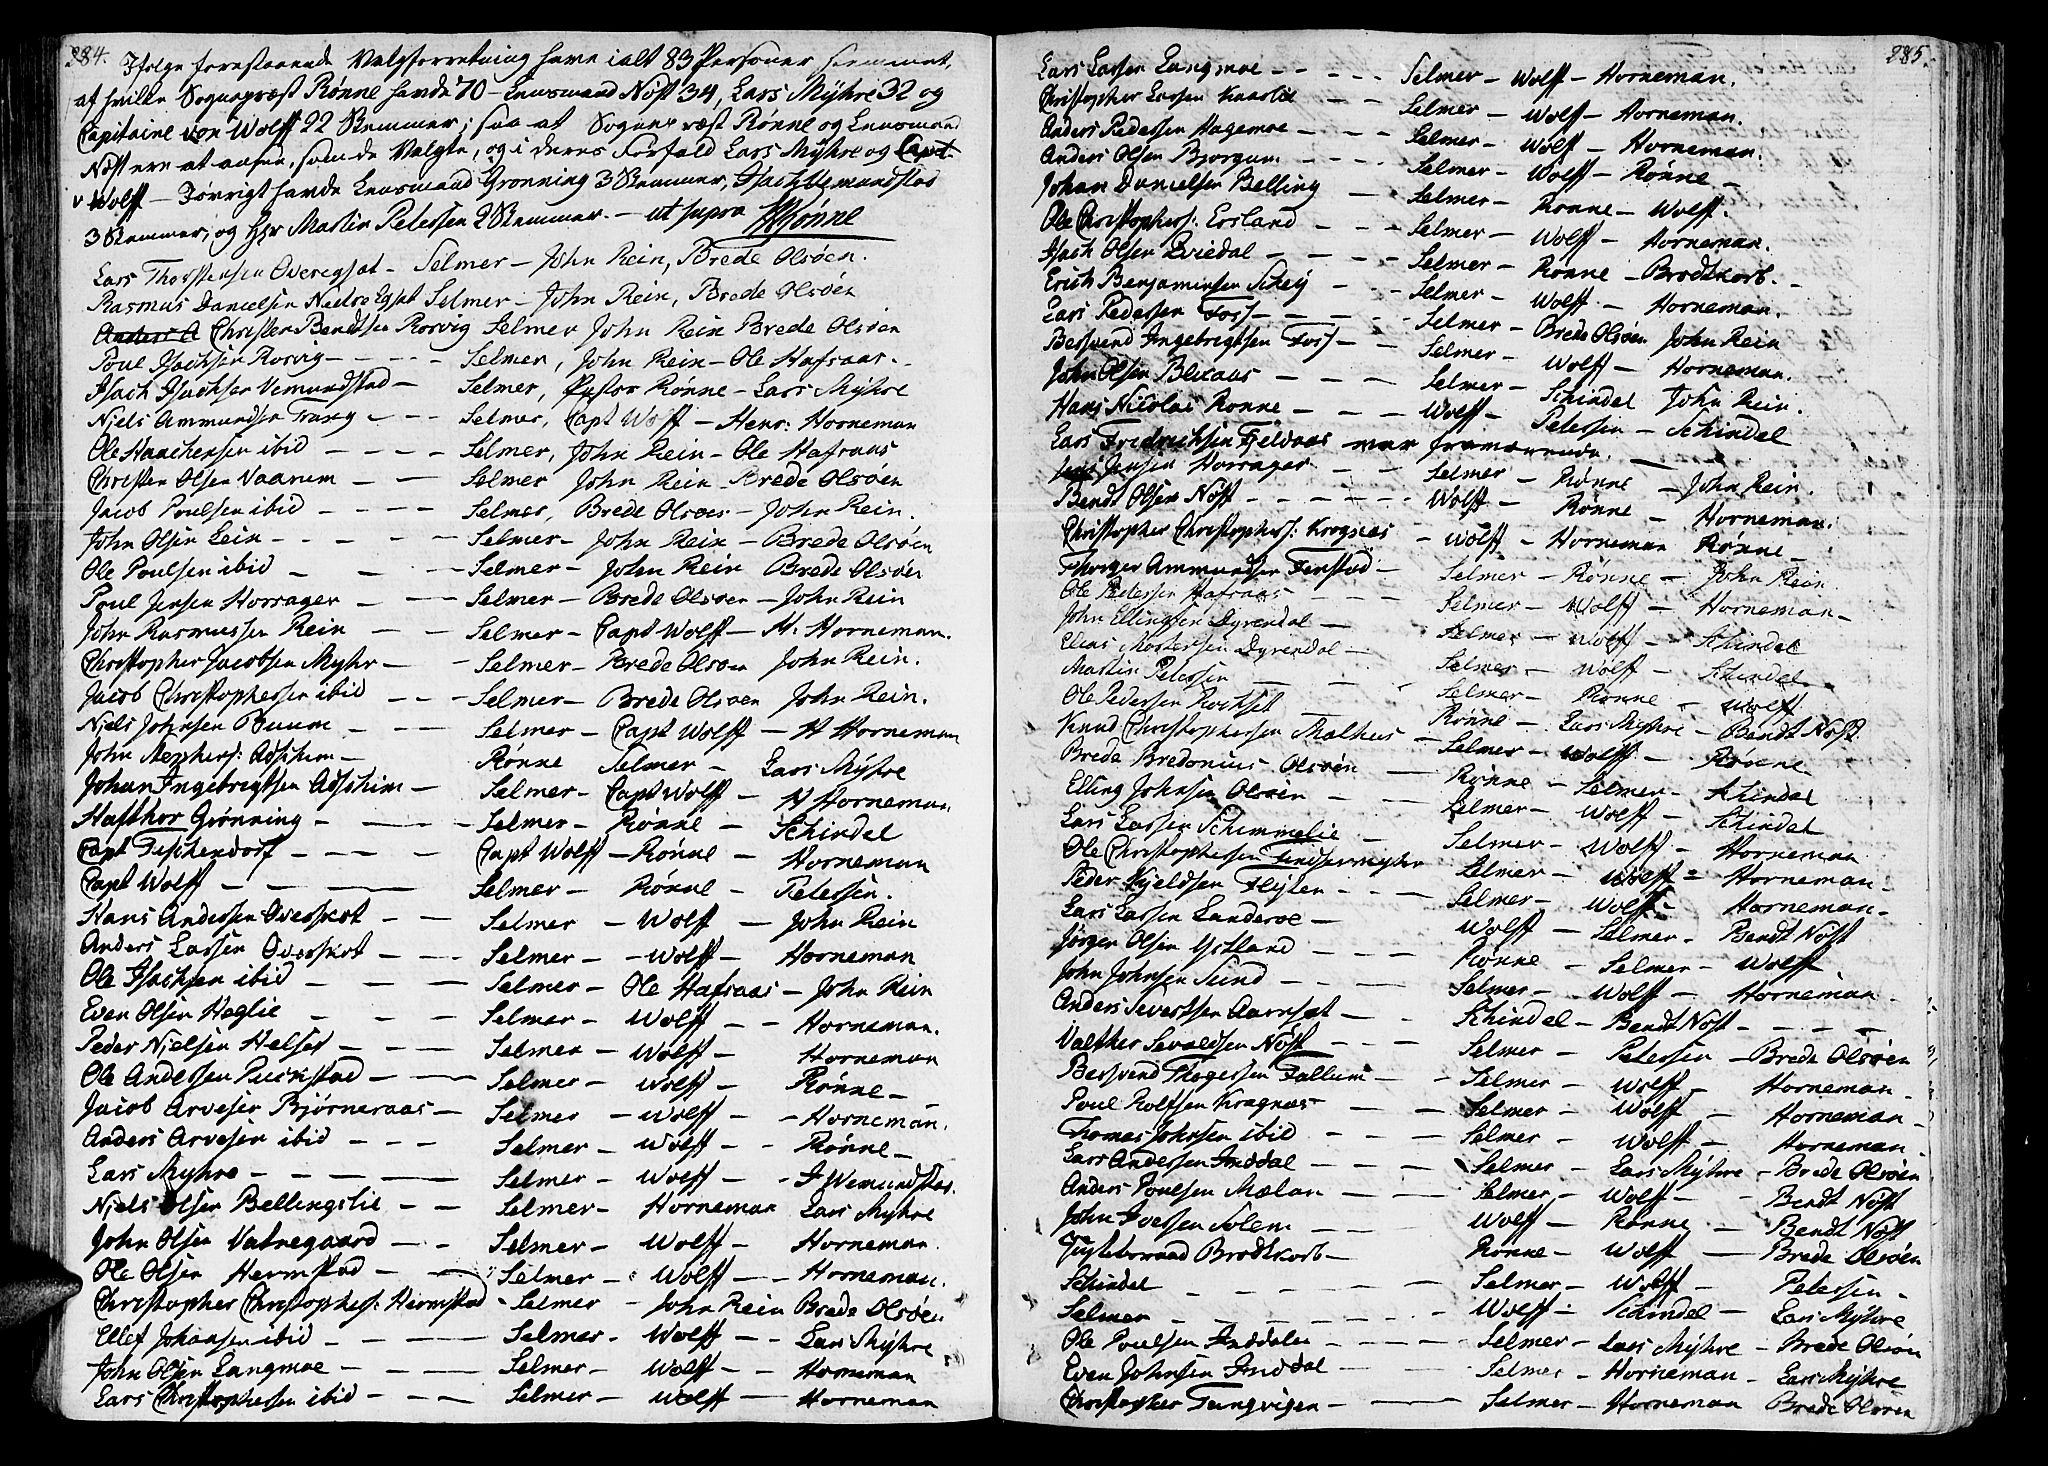 284.
Ifølge forestaaende Valgforretning have i alt 83 Personer stemmet,
af hvilke Sognepræst Rønne havde 70 – Lensmand Nöst 34, Lars Myhre 32 og
Capitaine von Wolff 22 Stemmer; saa at Sognepræst Rønne og Lensmand
Nöst ere at ansee, som de Valgte, og i deres Forfald Lars Myhre og Capt.
v Wolff – Iøvrigt havde Lensmand Grønning 3 Stemmer, Isach Vemundstad
3 Stemmer, og Hr Martin Petersen 2 Stemmer. – ut supra Rønne
Lars Thorstensen Overegset – Selmer – John Rein, Brede Olsøen.
Rasmus Danielsen Nedre Egset Selmer – John Rein, Brede Olsøen
Christen Bendtsen Rorvig Selmer John Rein Brede Olsøen
Poul Isachsen Rorvig – – – – Selmer, John Rein – Ole Hafsaas.
Isach Isachsen Vemundstad – Selmer, Pastor Rønne – Lars Myhre
Niels Ammundsen Trang – – – Selmer, Capt Wolff – Henr: Horneman
Ole Haachensen ibid – – – – Selmer, John Rein – Ole Hafsaas
Christen Olsen Vaarum – – Selmer John Rein – Brede Olsøen
Jacob Poulsen ibid – – – – Selmer, Brede Olsøen – John Rein.
John Olsen Lein – – – – – Selmer – John Rein – Brede Olsøen
Ole Poulsen ibid – – – Selmer – John Rein Brede Olsøen
Poul Jensen Horrager – – Selmer – Brede Olsøen – John Rein
John Rasmussen Rein – – Selmer – Capt Wolff – H. Horneman.
Christopher Jacobsen Myhr – – Selmer – Brede Olsøen John Rein.
Jacob Christophersen ibid – – – Selmer – Brede Olsøen John Rein.
Niels Johnsen Buum – – Selmer – Capt Wolff – H Horneman
John Adsshem – Rønne Selmer – Lars Myhre
Johan Ingebrigtsen Adshiem – Selmer – Capt Wolff – H Horneman
Hafthor Grønning – – – Selmer – Rønne – Schindel
Capt Tischendorf – – – – Capt Wolff – Rønne – Horneman
Capt Wolff – – – Selmer – Rønne – Petersen.
Hans Andersen Overskot – – Selmer – Wolff – John Rein
Anders Larsen Overskot – – – Selmer – Wolff – Horneman
Ole Isachsen ibid – – – Selmer – Ole Hafsaas – John Rein
Even Olsen Heglie – – – Selmer – Wolff – – Horneman.
Peder Nielsen Helset – – – Selmer – Wolff – Horneman
Ole Andersen Puckstad – – Selmer – Wolff – Rønne –
Jacob Arvesen Bjørneraas – Selmer – Wolff – – Horneman.
Anders Arvesen ibid – – – Selmer – Wolff – – Rønne –
Lars Myhre – – – – Selmer – Wolff – – I Vemundstad.
Niels Olsen Bellingslie – – – Selmer – Horneman Lars Myhre
John Olsen Vatnegaard – – Selmer – Wolff – Horneman.
Ole Olsen Hermstad – – Selmer – Wolff – – Horneman.
Christopher Christophers: Hermstad – Selmer – John Rein Brede Olsøen
Ellef Johansen ibid – – – Selmer – Wolff – – Lars Myhre
John Olsen Langmoe – – – Selmer – Wolff – – Horneman
Lars Christophersen ibid – – – Selmer – Wolff – Horneman
285.
Lars Larsen Langmoe – – – – Selmer – Wolff – Horneman.
Christopher Larsen – – Selmer – Wolff – Horneman.
Anders Pedersen Hagemoe – – – Selmer – Wolff – Horneman.
Anders Olsen Bjorgum – – – – Selmer – Wolff – Rønne –
Johan Danielsen Belling – – Selmer – Rønne – Wolff.
Ole Christophers: Ersland – – – Selmer – Wolff – Horneman.
Isach Olsen Qviedal – – – Selmer – Rønne – Brodtkorb.
Erich Benjaminsen Schey – – – Selmer – Wolff – Horneman.
Lars Pedersen Foss – – – – Selmer – Brede Olsøen John Rein
Bersvend Ingebrigtsen Foss – – Selmer – Wolff – Horneman.
John Olsen Blixaas – – – – Selmer – Schindel John Rein.
Hans Nicolai Rønne – – – – Wolff – Petersen – Schindel
Lars Fredrichsen Fjeldaas var fraværende.
Jensen Horrager – – Selmer – Rønne – John Rein.
Bendt Olsen Nöst – – – – – – Wolff – Rønne – Horneman.
Christopher Christophers: Krognes – Wolff – Horneman Rønne –
Thorger Ammundsen Fenstad – – Selmer – Rønne – John Rein.
Ole Petersen Hafsaas – – – Selmer – Wolff – Horneman –
John Ellingsen Dyrendal – – Selmer – Wolff – Schindel
Elias Mortensen Dyrendal – – Selmer – Wolff – Schindel
Martin Petersen – – – Selmer – Rønne – Wolff
Ole Pedersen Rochset – – – Rønne – Lars Myhre – Bendt Nöst
Knud Christophersen Melhus – Selmer – Wolff – Rønne
Brede Bredonius Olsøen – Rønne – Selmer – Schindel
Elling Johnsen Olsøen – – – Selmer – Wolff – Schindel
Lars Larsen Schimmelie – – Selmer – Wolff – Horneman
Ole Christophersen – Selmer – Wolff – Horneman –
Peder Kjeldsen Flyten – – – Selmer – Wolff – Horneman –
Lars Larsen Landeroe – – Wolff – Selmer – Bendt Nöst
Jørger Olsen Ystland – – – Rønne – Selmer – Wolff
John Johnsen Sund – – – – Selmer – Wolff – Horneman –
Anders Sivertsen Aarnset – – Schindel – Bendt Nöst – – – –
Valther Sevaldsen Nöst – – – Selmer – Petersen – Brede Olsøen
Bersvend Thogersen Fallum – – Selmer – Wolff – Horneman –
Poul Rolfsen Kragnæs – – – Selmer – Wolff – Horneman –
Thomas Johnsen ibid – – – Selmer – Wolff – Horneman –
Lars Andersen Inddal – – – Selmer – Lars Myhre – Brede Olsøen
Anders Poulsen Mælan – – – Selmer – Wolff – – Bendt Nöst
John Iversen Solem – – – – Wolff – Rønne – Bendt Nöst
Brodtkorb – Rønne – Wolff – Brede Olsøen
Schindel – – – – – Selmer – Wolff – Petersen –
Selmer – – – – – Wolff – Schindel – Lars Myhre
Ole Poulsen Inddalen – – – Selmer – Lars Myhre – Brede Olsøen
Even Johnsen Inddal – – – Selmer – Horneman – Lars Myhre
Christopher Tungvigen – – – Selmer – Horneman Brede Olsøen